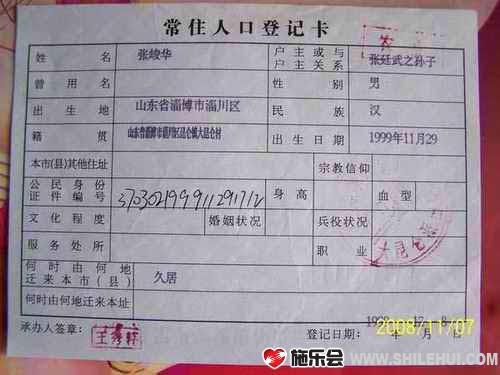 常住人口登记卡
姓名 张峻华 户主或与户主关系 张廷武之孙子
曾用名 性别 男
出生地 山东省淄博市淄川区 民族 汉
籍贯 山东省淄博市淄川区昆仑镇大昆仑村 出生日期 1999年11月29
本市(县)其他住址 宗教信仰
公民身份证件编号 370302199911291712 身高 血型
文化程度 婚姻状况 兵役状况
服务处所 职业
何时由何地迁来本市(县) 久居
何时由何地迁来本址
承办人签章: 登记日期: 年 月 日
2008/11/07
施乐会
WWW.SHILEHUI.COM